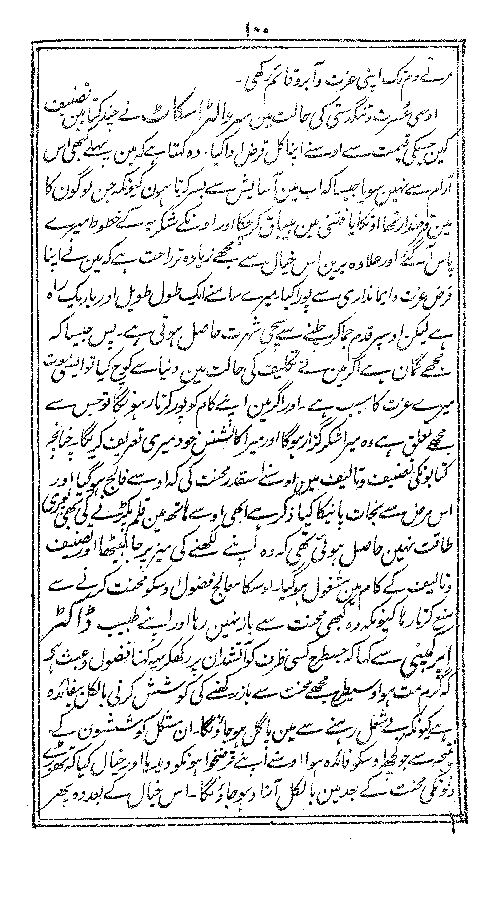 ۱۰۰
مرتے دم تک اپنی عزت و آبرو قائم رکھی۔
اوسی عسرت و تنگدستی کی حالت مین سر والٹر اسکاٹ نے چند کتابین تصنیف
کین جسکی قیمت سے اوسنے اپنا کل قرض ادا کیا۔ وہ کہتا ہے کہ مین پہلے کبھی اس
آرام سے نہین سویا جیسا کہ اب مین آسایش سے بسر کرتا ہون کیونکہ جن لوگون کا
مین قرضدار تھا اونکا پائی پائی مین بیباق کر چکا اور اونکے شکریہ کے خطوط میرے
پاس آ گئے اور علاوہ برین اس خیال سے مجھے زیادہ تر راحت ہے کہ مین نے اپنا
قرض عزت و ایمانداری سے پورا کیا۔ میرے سامنے ایک طول طویل اور باریک راہ
ہے لیکن اوسپر قدم جما کر چلنے سے سچی شہرت حاصل ہوتی ہے۔ پس جیسا کہ
مجھے گمان ہے اگر مین نے تکلیف کی حالت مین دنیا سے کوچ کیا تو ایسی موت
میرے عزت کا سبب ہے۔ اور اگر مین اپنے کام کو پورا کرتا رہونگا تو جس سے
مجھے تعلق ہے وہ میرا شکرگزار ہوگا اور میرا کانشنس خود میری تعریف کریگا۔ چنانچہ
کتابونکی تصنیف و تالیف مین اوسنے اسقدر محنت کی کہ اوسے فالج ہو گیا اور
اس مرض سے نجات پانیکا کیا ذکر ہے ابھی اوسے ہاتھ مین قلم پکڑنے کی بھی پوری
طاقت نہین حاصل ہوئی تھی کہ وہ اپنے لکھنے کی میز پر جا بیٹھا اور تصنیف
و تالیف کے کام مین مشغول ہو گیا۔ اوسکا معالج فضول اوسکو محنت کرنے سے
منع کرتا رہا کیونکہ وہ کبھی محنت سے باز نہین رہا اور اپنے طبیب ڈاکٹر
سے کہا کہ جسطرح کسی ظرف کو آتشدان پر رکھکر یہ کہنا فضول و عبث ہے
کہ گرم مت ہو اوسیطرح مجھے محنت سے باز رکھنے کی کوشش کرنی بالکل بیفائدہ
ہے کیونکہ بے شغل رہنے سے مین پاگل ہو جاؤنگا۔ ان مستقل کوششون کے
نتیجہ سے جو کچھ اوسکو فائدہ ہوا اوسنے اپنے قرضخواہونکو دیدیا اور خیال کیا کہ تھوڑے
دنونکی محنت کے بعد مین بالکل آزاد ہو جاؤنگا۔ اس خیال کے بعد وہ پھر